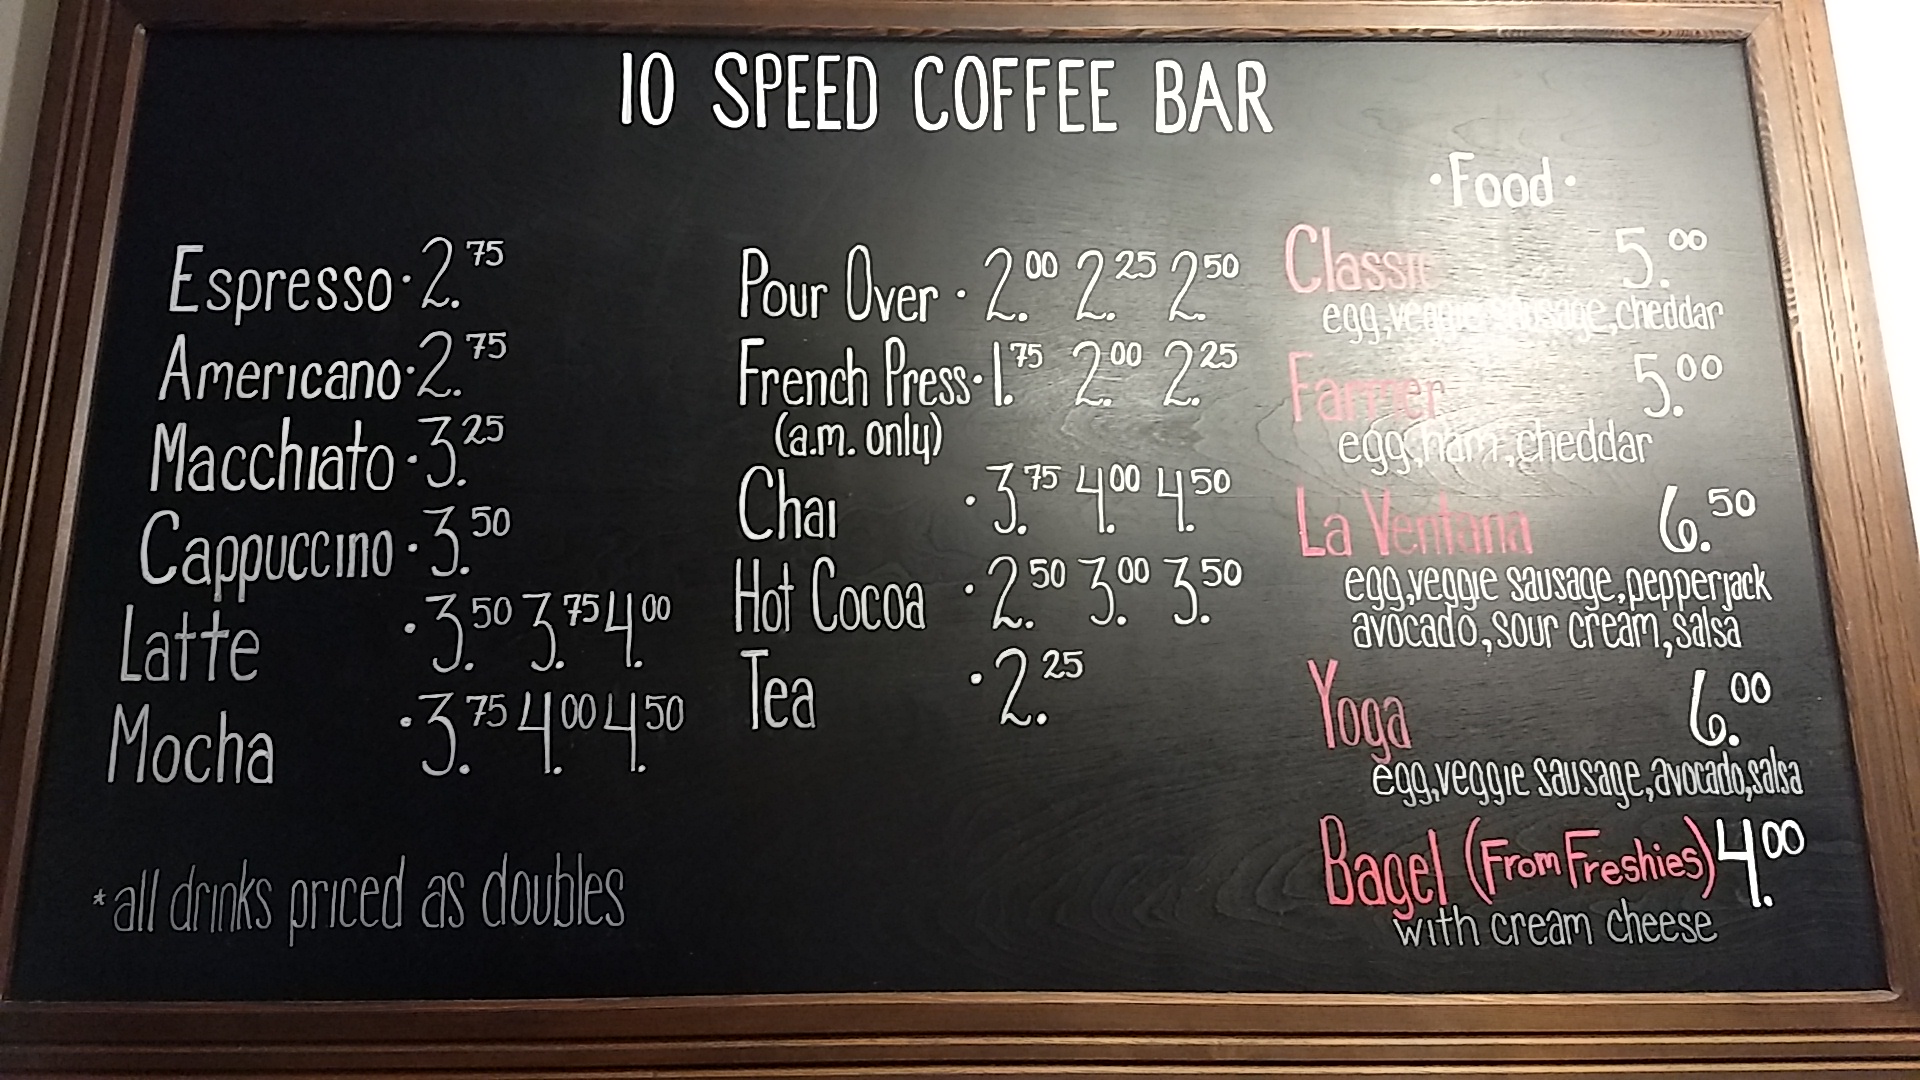 10 SPEED COFFEE BAR
Espresso · 2.75
Americano · 2.75
Macchiato · 3.25
Cappuccino · 3.50
Latte · 3.50 3.75 4.00
Mocha · 3.75 4.00 4.50
*all drinks priced as doubles
Pour Over · 2.00 2.25 2.50
French Press · 1.75 2.00 2.25
(a.m. only)
Chai · 3.75 4.00 4.50
Hot Cocoa · 2.50 3.00 3.50
Tea · 2.25
·Food·
Classic 5.00
egg, veggie sausage, cheddar
Farmer 5.00
egg, ham, cheddar
La Ventana 6.50
egg, veggie sausage, pepperjack
avocado, sour cream, salsa
Yoga 6.00
egg, veggie sausage, avocado, salsa
Bagel (From Freshies) 4.00
with cream cheese